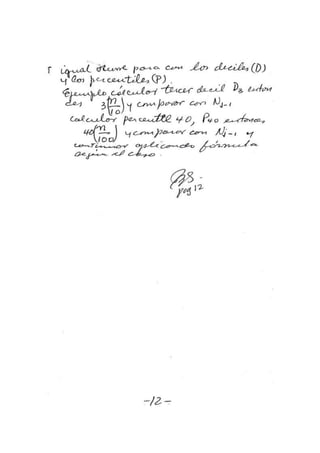 igual ocurre para con los deciles (D)
y los percentiles (P).
Ejemplo calcular tercer decil D3 enton
ces 3(n/10) y comparar con Nj-1
calcular percentil 40, P40 entonces,
40(n/100) y comparar con Nj-1 y
continuar aplicando fórmula
según el caso.
pag 12
-12-